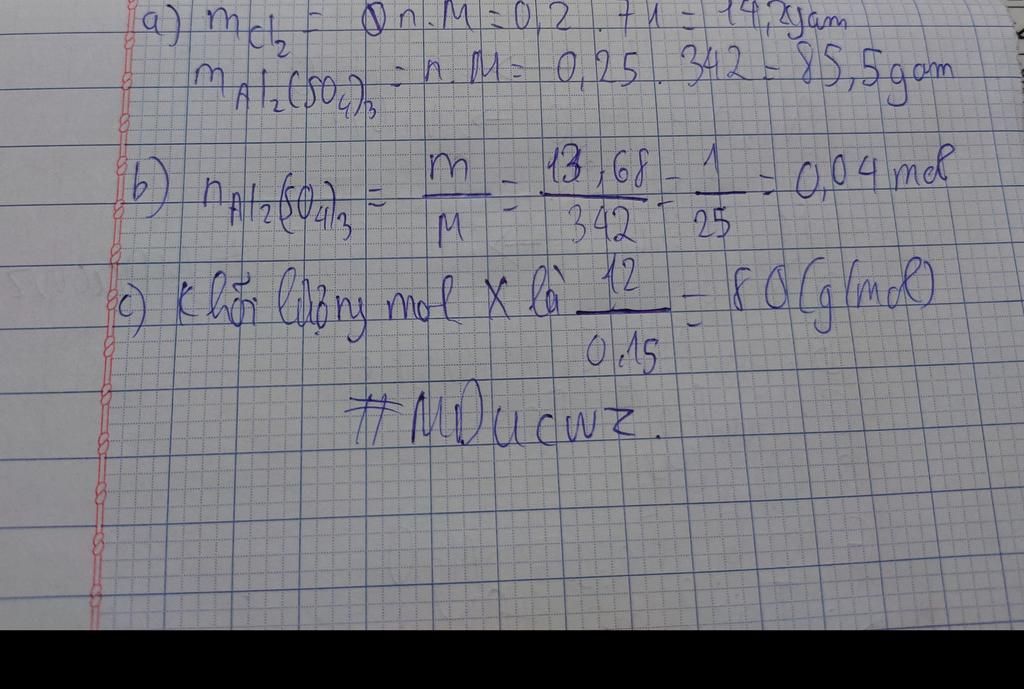 a) mCl2 = n.M = 0,2 . 71 = 14,2gam
mAl2(SO4)3 = n.M = 0,25 . 342 = 85,5gam
b) nAl2(SO4)3 = m/M = 13,68/342 = 1/25 = 0,04 mol
c) Khối lượng mol X là 12/0,15 = 80(g/mol)
#MDucwz.